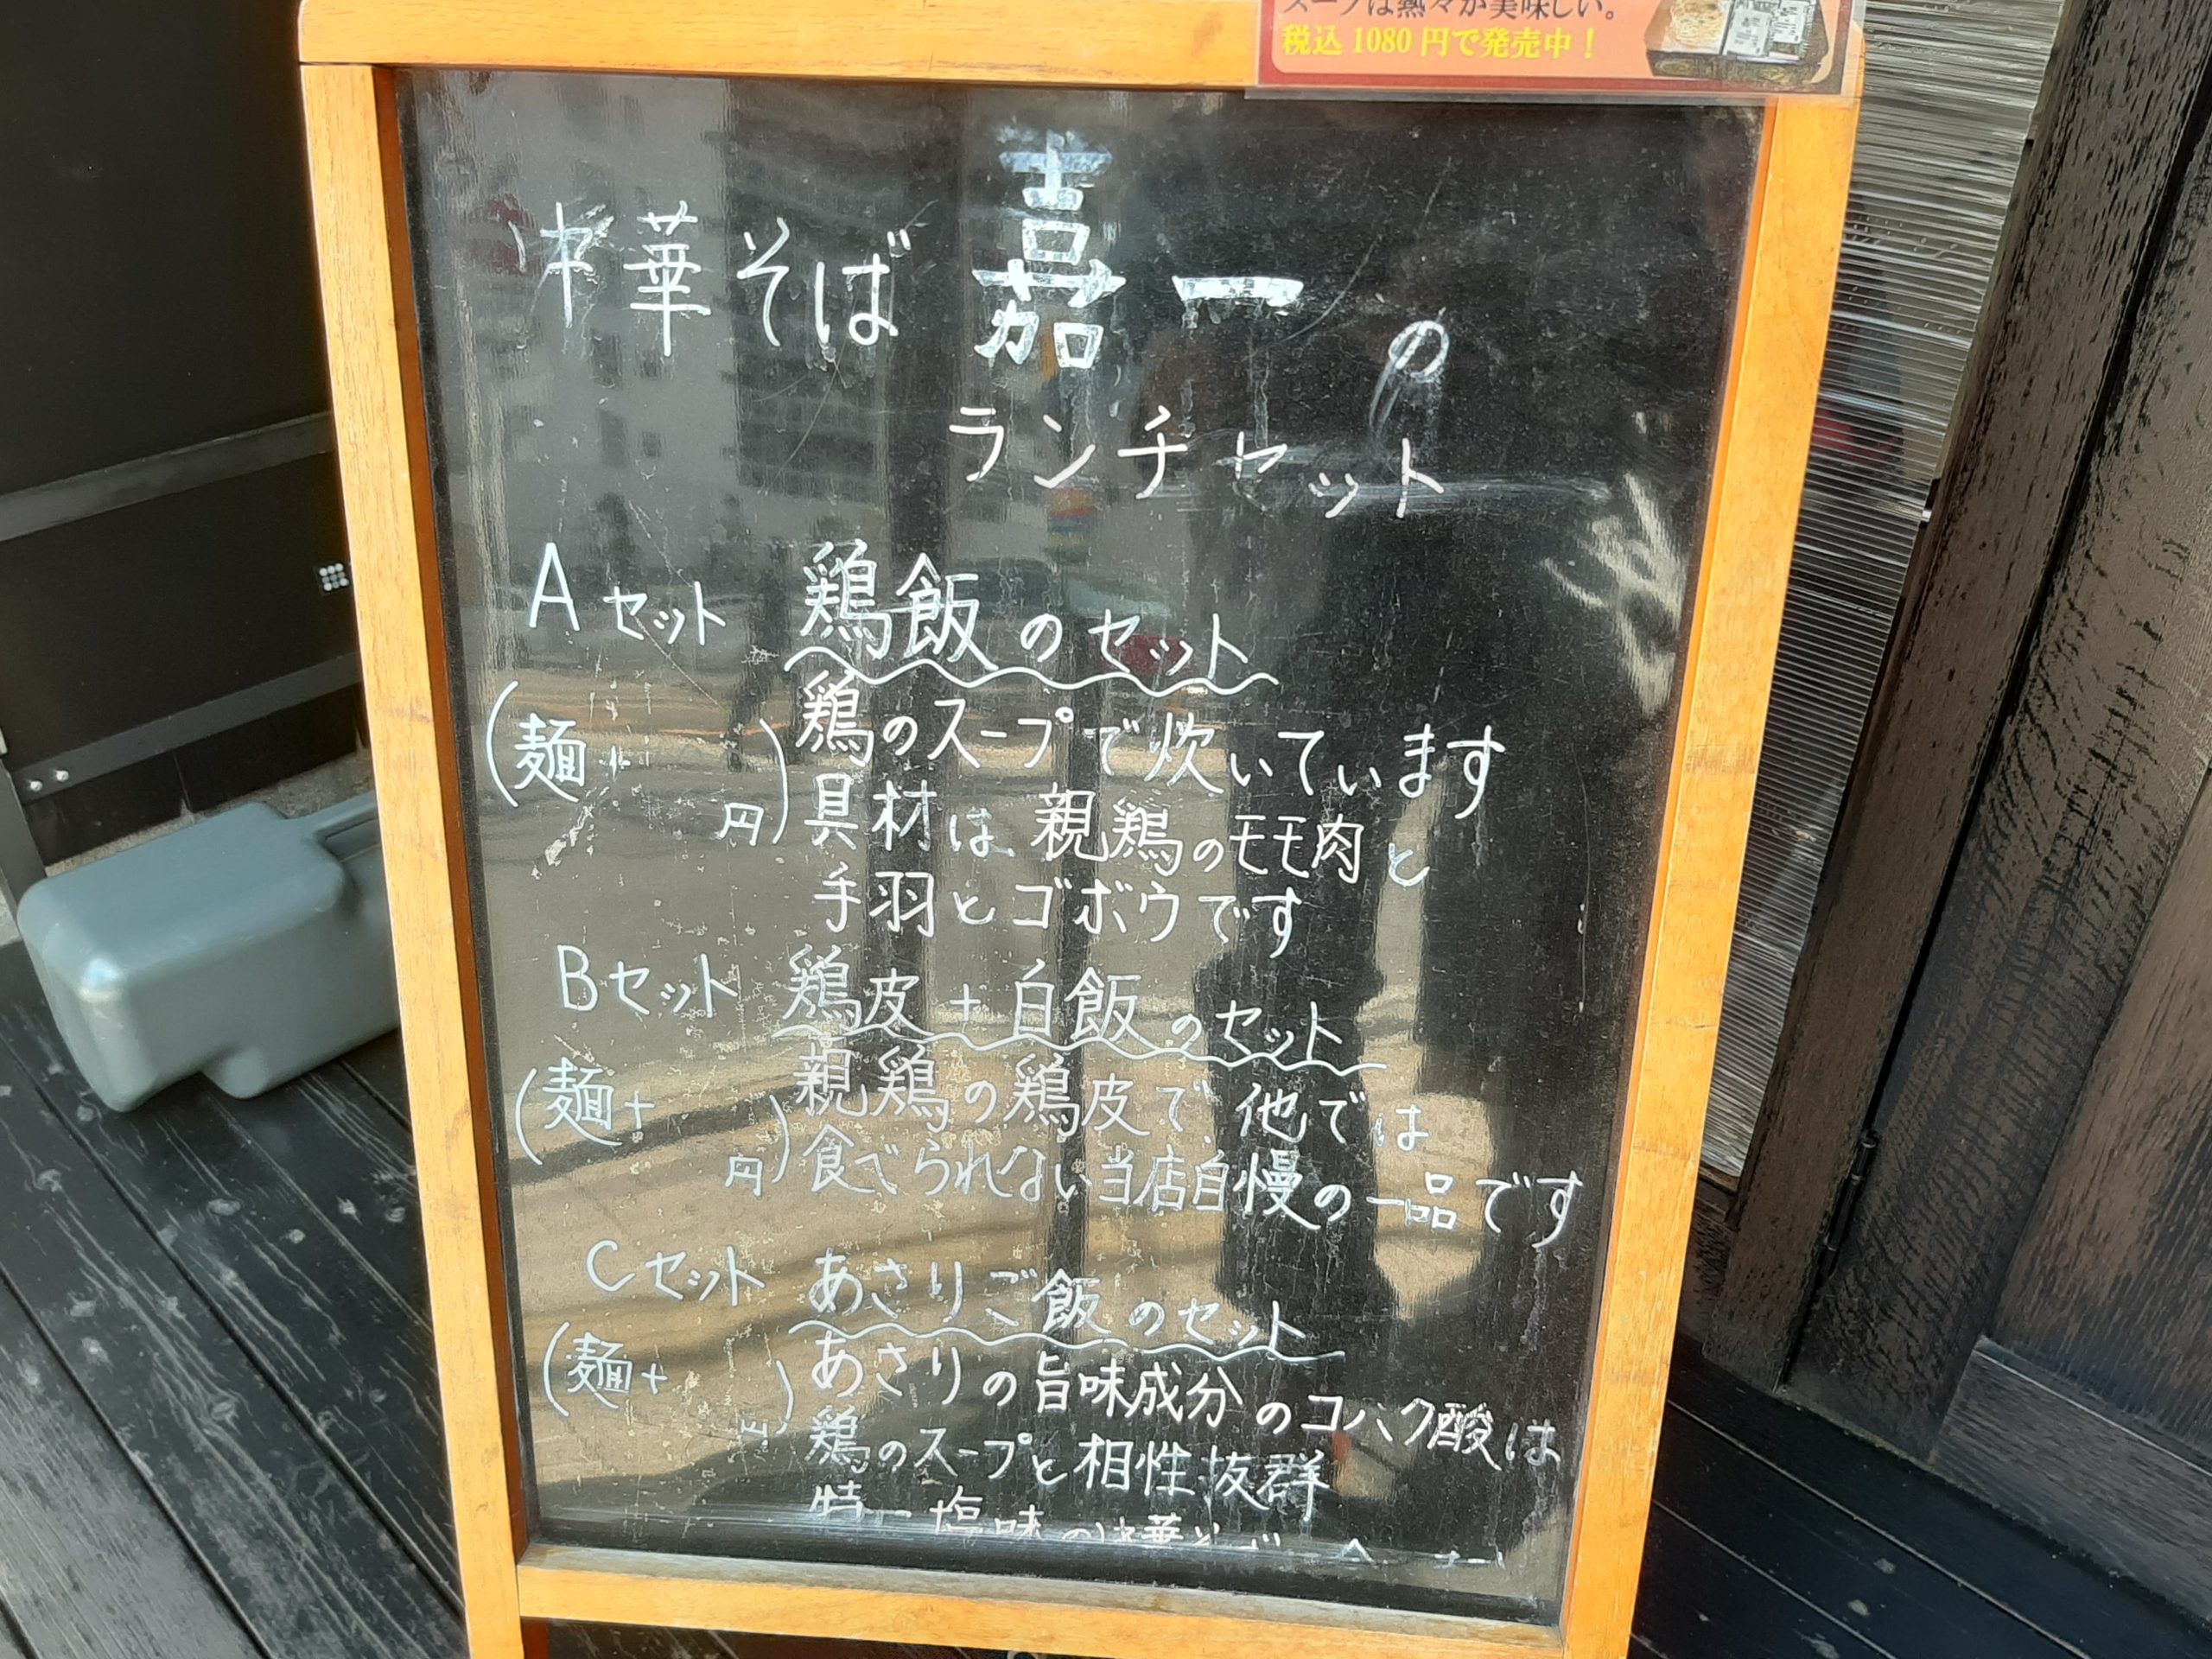 スープは熱々が美味しい。
税込1080円で発売中！
中華そば 嘉一の
ランチセット
Aセット 鶏飯のセット
(麺+ 円)
鶏のスープで炊いています
具材は親鶏のモモ肉と
手羽とゴボウです
Bセット 鶏皮+白飯のセット
(麺+ 円)
親鶏の鶏皮で他では
食べられない当店自慢の一品です
Cセット あさりご飯のセット
(麺+ )
あさりの旨味成分のコハク酸は
鶏のスープと相性抜群
特に塩味の中華そば